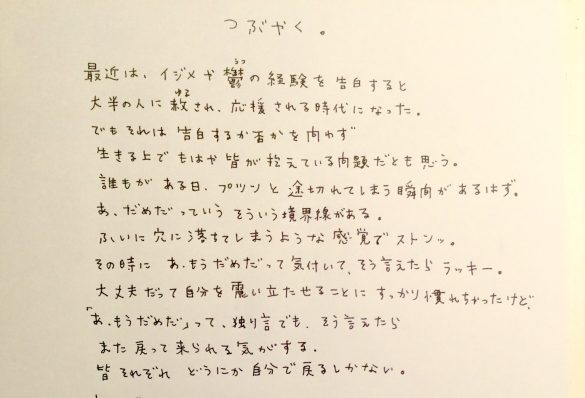 つぶやく。
最近は、イジメや鬱の経験を告白すると
大半の人に赦され、応援される時代になった。
でもそれは告白するか否かを問わず
生きる上でもはや皆が抱えている問題だとも思う。
誰もがある日、プツンと途切れてしまう瞬間があるはず。
あ、だめだっていうそういう境界線がある。
ふいに穴に落ちてしまうような感覚でストンッ。
その時にあ、もうだめだって気付いて、そう言えたらラッキー。
大丈夫だって自分を奮い立たせることにすっかり慣れちゃったけど、
「あ、もうだめだ」って、独り言でも、そう言えたら
また戻って来られる気がする。
皆それぞれどうにか自分で戻るしかない。